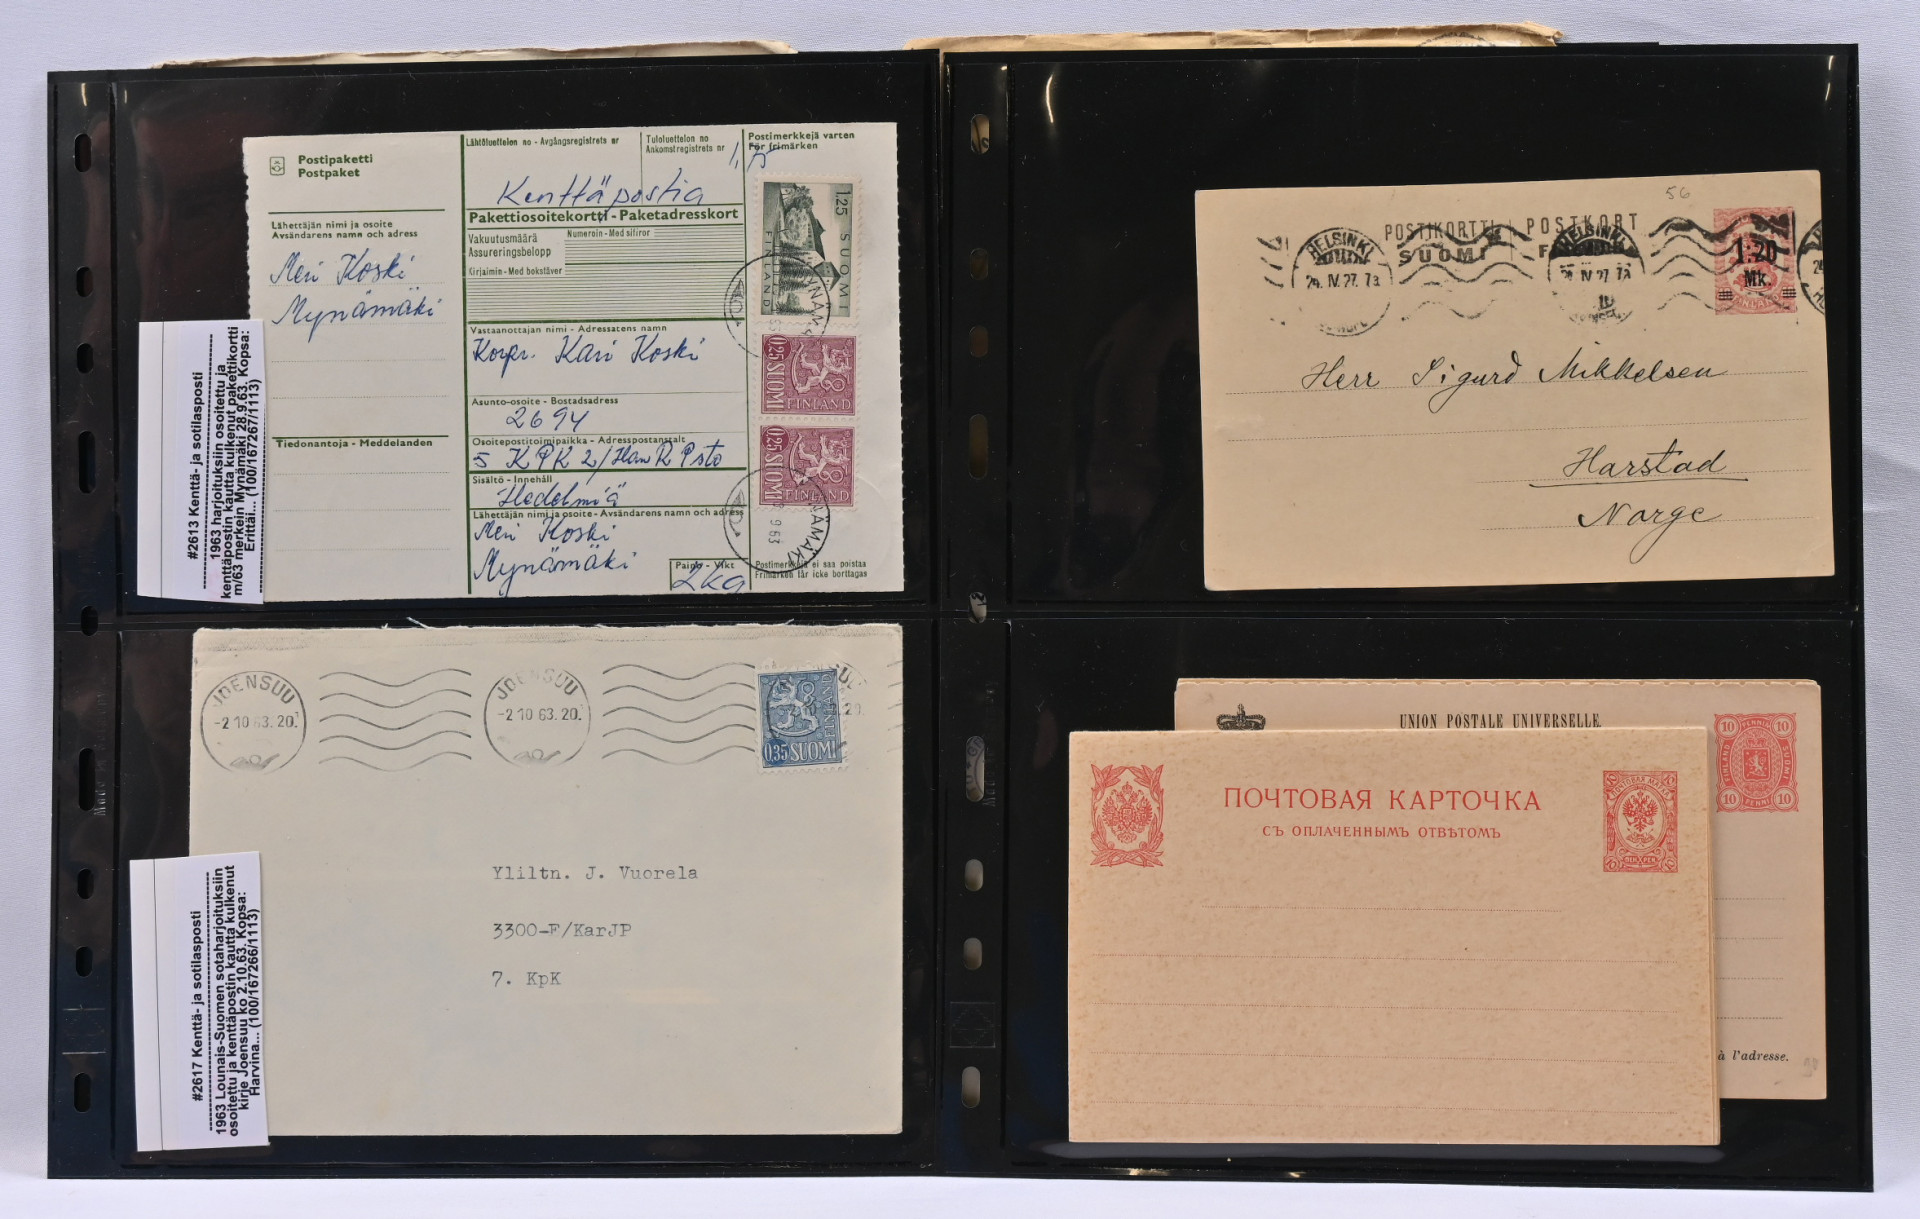 Postipaketti
Postpaket
Lähettäjän nimi ja osoite
Avsändarens namn och adress
Meri Koski
Mynämäki
Tiedonantoja - Meddelanden
Lähtöluettelon no - Avgångsregistrets nr
Tuloluettelon no
Ankomstregistrets nr
Kenttäpostia
Pakettiosoitekortti - Paketadresskort
Vakuutusmäärä
Assureringsbelopp
Numeroin - Med siffror
Kirjaimin - Med bokstäver
Vastaanottajan nimi - Adressatens namn
Korpr. Kari Koski
Asunto-osoite - Bostadsadress
2694
Osoitepostitoimipaikka - Adresspostanstalt
5 KPK 2/Ham R Psto
Sisältö - Innehåll
Hedelmiä
Lähettäjän nimi ja osoite - Avsändarens namn och adress
Meri Koski
Mynämäki
Paino - Vikt
2 kg
Postimerkkejä varten
För frimärken
1,75
1,25 SUOMI
FINLAND
0,25 SUOMI
FINLAND
0,25 SUOMI
FINLAND
9 63
MYNÄMÄKI
Postimerkkejä ei saa poistaa
Frimärken får icke borttagas
#2613 Kenttä- ja sotilasposti
1963 harjoituksiin osoitettu ja
kenttäpostin kautta kulkenut pakettikortti
m/63 merkein Mynämäki 28.9.63. Kopsa:
Erittäi... (100/167267/1113)
JOENSUU
-2 10 63. 20.
JOENSUU
-2 10 63. 20.
0,35 SUOMI
FINLAND
Yliltn. J. Vuorela
3300-F/KarJP
7. KpK
#2617 Kenttä- ja sotilasposti
1963 Lounais-Suomen sotaharjoituksiin
osoitettu ja kenttäpostin kautta kulkenut
kirje Joensuu ko 2.10.63. Kopsa:
Harvina... (100/167266/1113)
56
POSTIKORTTI POSTKORT
SUOMI
HELSINKI
24. IV. 27. 7a
HELSINKI
24. IV. 27. 7a
10
1:20
Mk.
Herr Sigurd Mikkelsen
Harstad
Norge
UNION POSTALE UNIVERSELLE.
10 PENNIÄ 10
FINLAND
SUOMI
10 PENNI 10
à l'adresse.
ПОЧТОВАЯ КАРТОЧКА
СЪ ОПЛАЧЕННЫМЪ ОТВѢТОМЪ